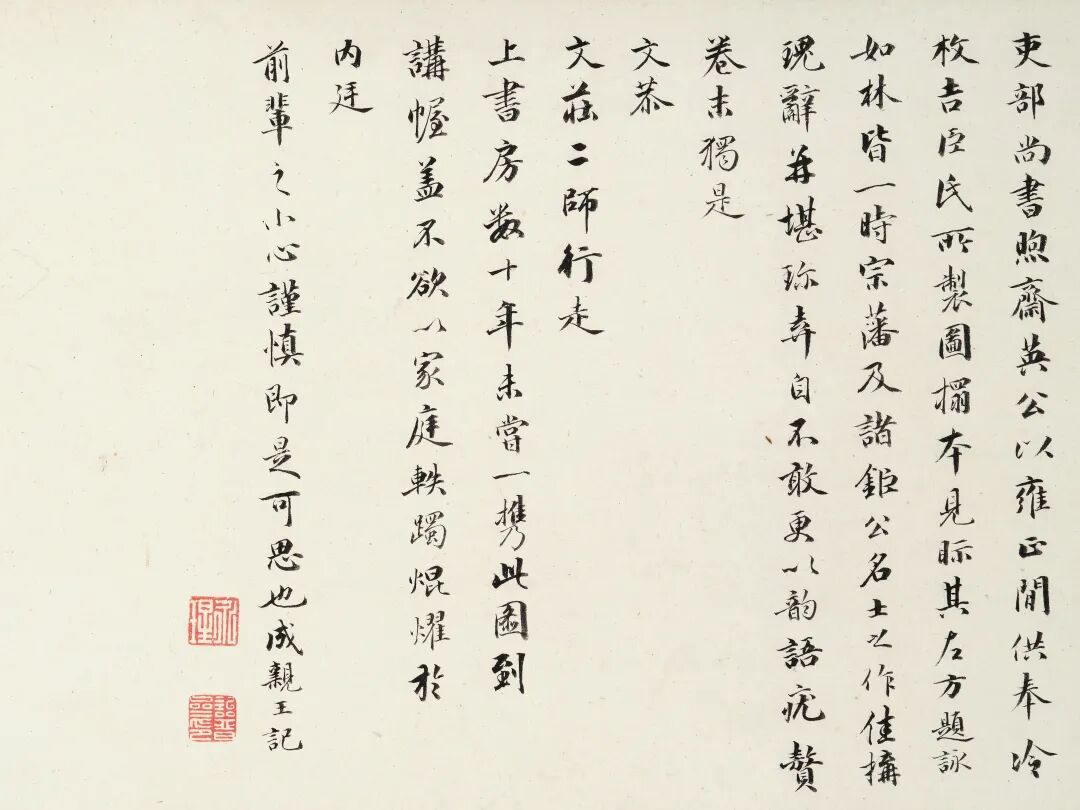 吏部尚書煦齋英公以雍正間供奉冷
枚吉臣氏所製圖搨本見眎其左方題詠
如林皆一時宗藩及諸鉅公名士之作佳搆
瑰辭並堪珎弆自不敢更以韵語疣贅
卷末獨是
文恭
文莊二師行走
上書房数十年未嘗一携此圖到
講幄盖不欲以家庭軼躅焜燿於
内廷
前輩之小心謹慎即是可思也成親王記
永瑆